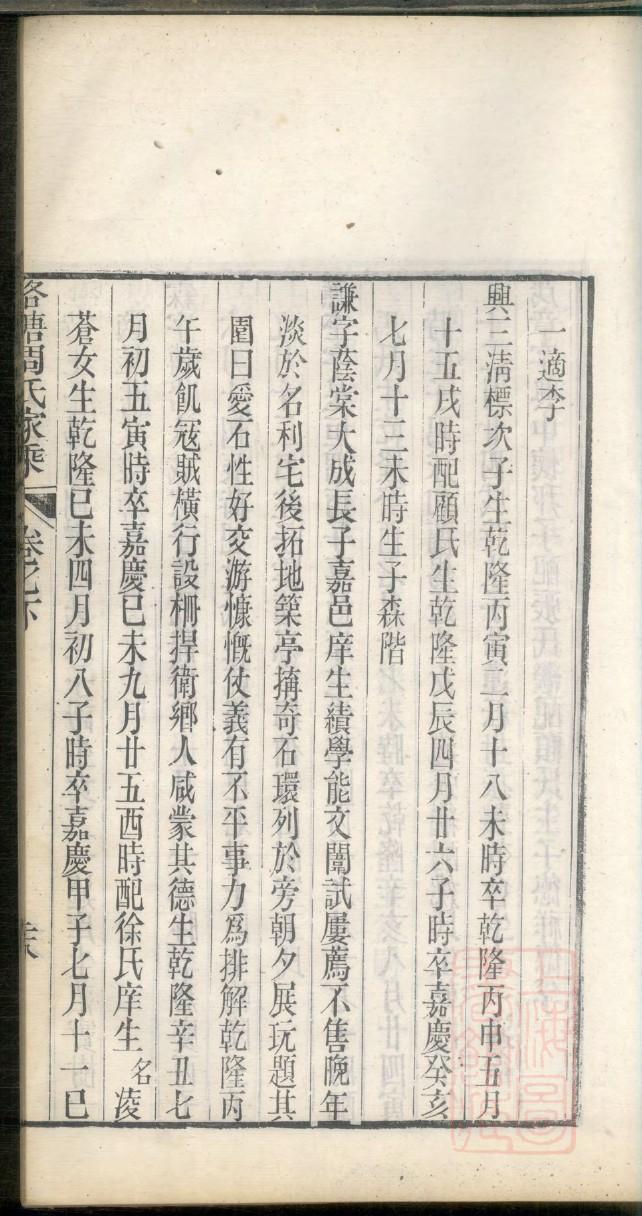 一適李
興三淸標次子生乾隆丙寅二月十八未時卒乾隆丙申五月
十五戌時配顧氏生乾隆戊辰四月廿六子時卒嘉慶癸亥
七月十三未時生子森階
謙字蔭棠大成長子嘉邑庠生績學能文闈試屢薦不售晚年
淡於名利宅後拓地築亭搆奇石環列於旁朝夕展玩題其
園曰愛石性好交游慷慨仗義有不平事力爲排解乾隆丙
午歲飢冦賊橫行設柵捍衛鄉人咸蒙其德生乾隆辛丑七
月初五寅時卒嘉慶己未九月廿五酉時配徐氏庠生名蓤
蒼女生乾隆己未四月初八子時卒嘉慶甲子七月十一巳
塘周氏家乘 卷之下